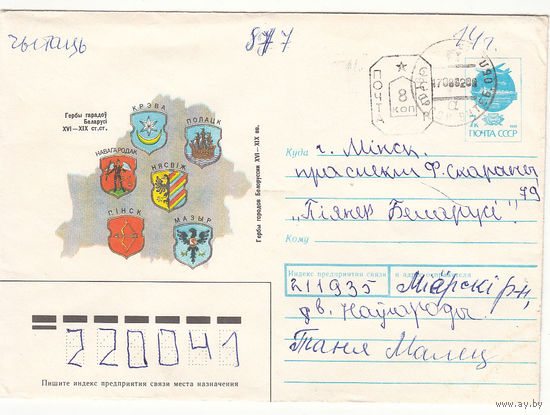 чытаць
8Ж7
14г.
Гербы гарадоў
Беларусі
XVI — XIX ст.ст.
КРЭВА
ПОЛАЦК
НАВАГАРОДАК
НЯСВІЖ
ПІНСК
МАЗЫР
Гербы городов Белоруссии XVI — XIX вв.
ПОЧТА
8
КОП
7К
ПОЧТА СССР
Куда
г. Мінск.
праспект Ф. Скарыны
79
"Піянер Беларусі".
Кому
Индекс предприятия связи и адрес отправителя
211935 Міёрскі р-н,
дв. Наўгароды.
Таня Малец
220041
Пишите индекс предприятия связи места назначения
www.ay.by